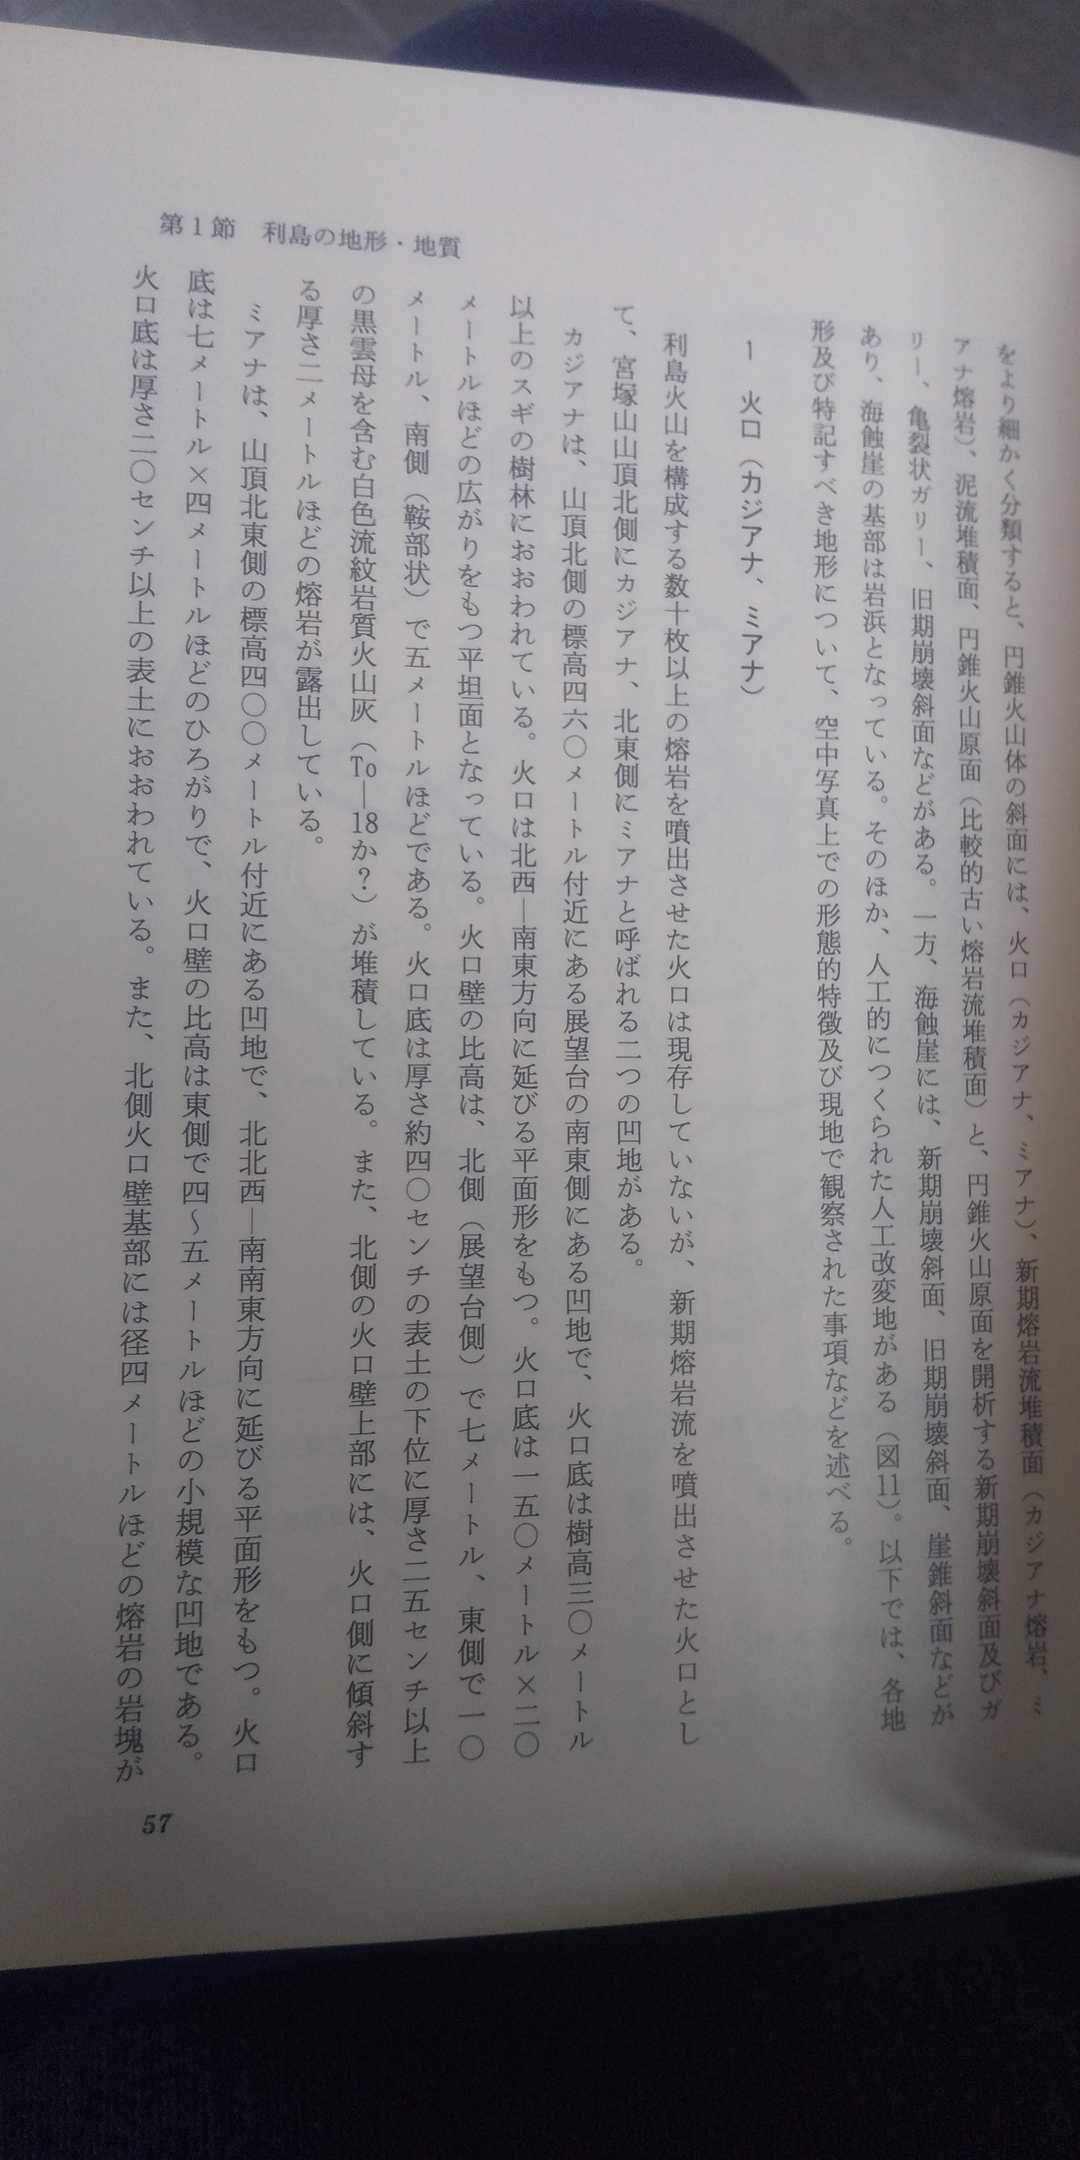 第1節　利島の地形・地質
をより細かく分類すると、円錐火山体の斜面には、火口（カジアナ、ミアナ）、新期熔岩流堆積面（カジアナ熔岩、ミ
アナ熔岩）、泥流堆積面、円錐火山原面（比較的古い熔岩流堆積面）と、円錐火山原面を開析する新期崩壊斜面及びガ
リー、亀裂状ガリー、旧期崩壊斜面などがある。一方、海蝕崖には、新期崩壊斜面、旧期崩壊斜面、崖錐斜面などが
あり、海蝕崖の基部は岩浜となっている。そのほか、人工的につくられた人工改変地がある（図11）。以下では、各地
形及び特記すべき地形について、空中写真上での形態的特徴及び現地で観察された事項などを述べる。
1　火口（カジアナ、ミアナ）
利島火山を構成する数十枚以上の熔岩を噴出させた火口は現存していないが、新期熔岩流を噴出させた火口とし
て、宮塚山山頂北側にカジアナ、北東側にミアナと呼ばれる二つの凹地がある。
カジアナは、山頂北側の標高四六〇メートル付近にある展望台の南東側にある凹地で、火口底は樹高三〇メートル
以上のスギの樹林におおわれている。火口は北西―南東方向に延びる平面形をもつ。火口底は一五〇メートル×二〇
メートルほどの広がりをもつ平坦面となっている。火口壁の比高は、北側（展望台側）で七メートル、東側で一〇
メートル、南側（鞍部状）で五メートルほどである。火口底は厚さ約四〇センチの表土の下位に厚さ二五センチ以上
の黒雲母を含む白色流紋岩質火山灰（To―18か？）が堆積している。また、北側の火口壁上部には、火口側に傾斜す
る厚さ二メートルほどの熔岩が露出している。
ミアナは、山頂北東側の標高四〇〇メートル付近にある凹地で、北北西―南南東方向に延びる平面形をもつ。火口
底は七メートル×四メートルほどのひろがりで、火口壁の比高は東側で四～五メートルほどの小規模な凹地である。
火口底は厚さ二〇センチ以上の表土におおわれている。また、北側火口壁基部には径四メートルほどの熔岩の岩塊が
57